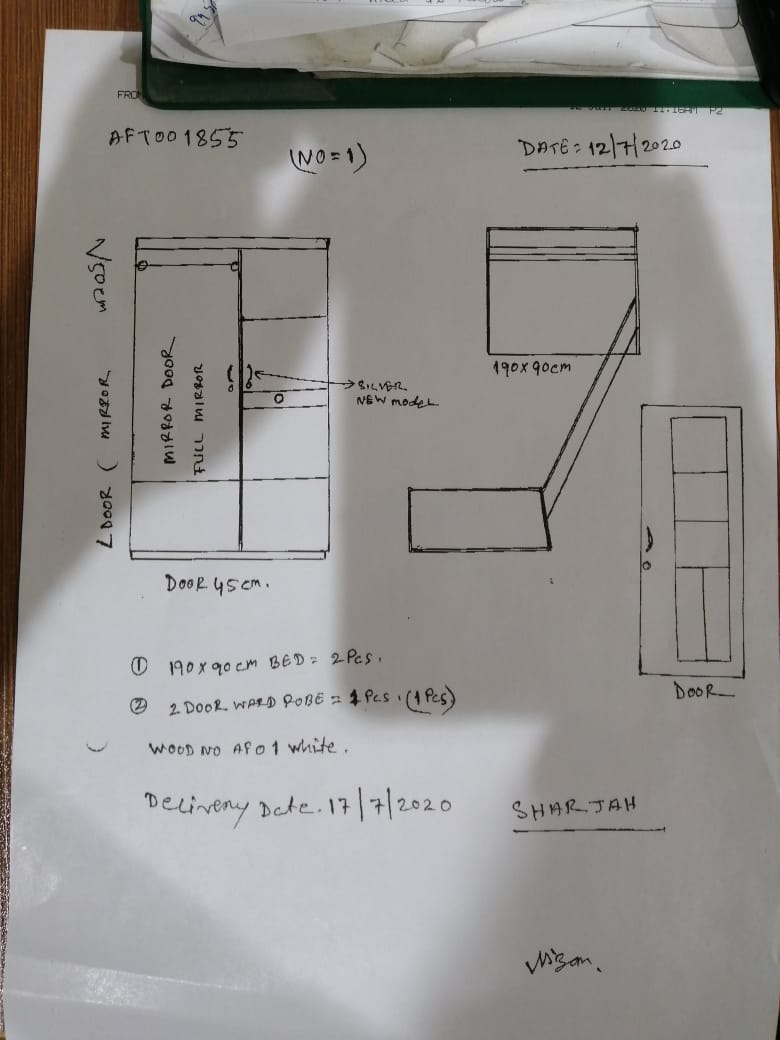 AFT001855
(NO=1)
DATE= 12/7/2020
DOOR ( MIRROR
MIRROR DOOR
FULL MIRROR
SILVER
NEW model
DOOR 45cm.
190x90cm
DOOR
① 190x90cm BED = 2Pcs.
② 2 DOOR WARD ROBE = 1 Pcs. (1 Pcs)
WOOD NO AF01 White.
Delivery Date. 17/7/2020
SHARJAH